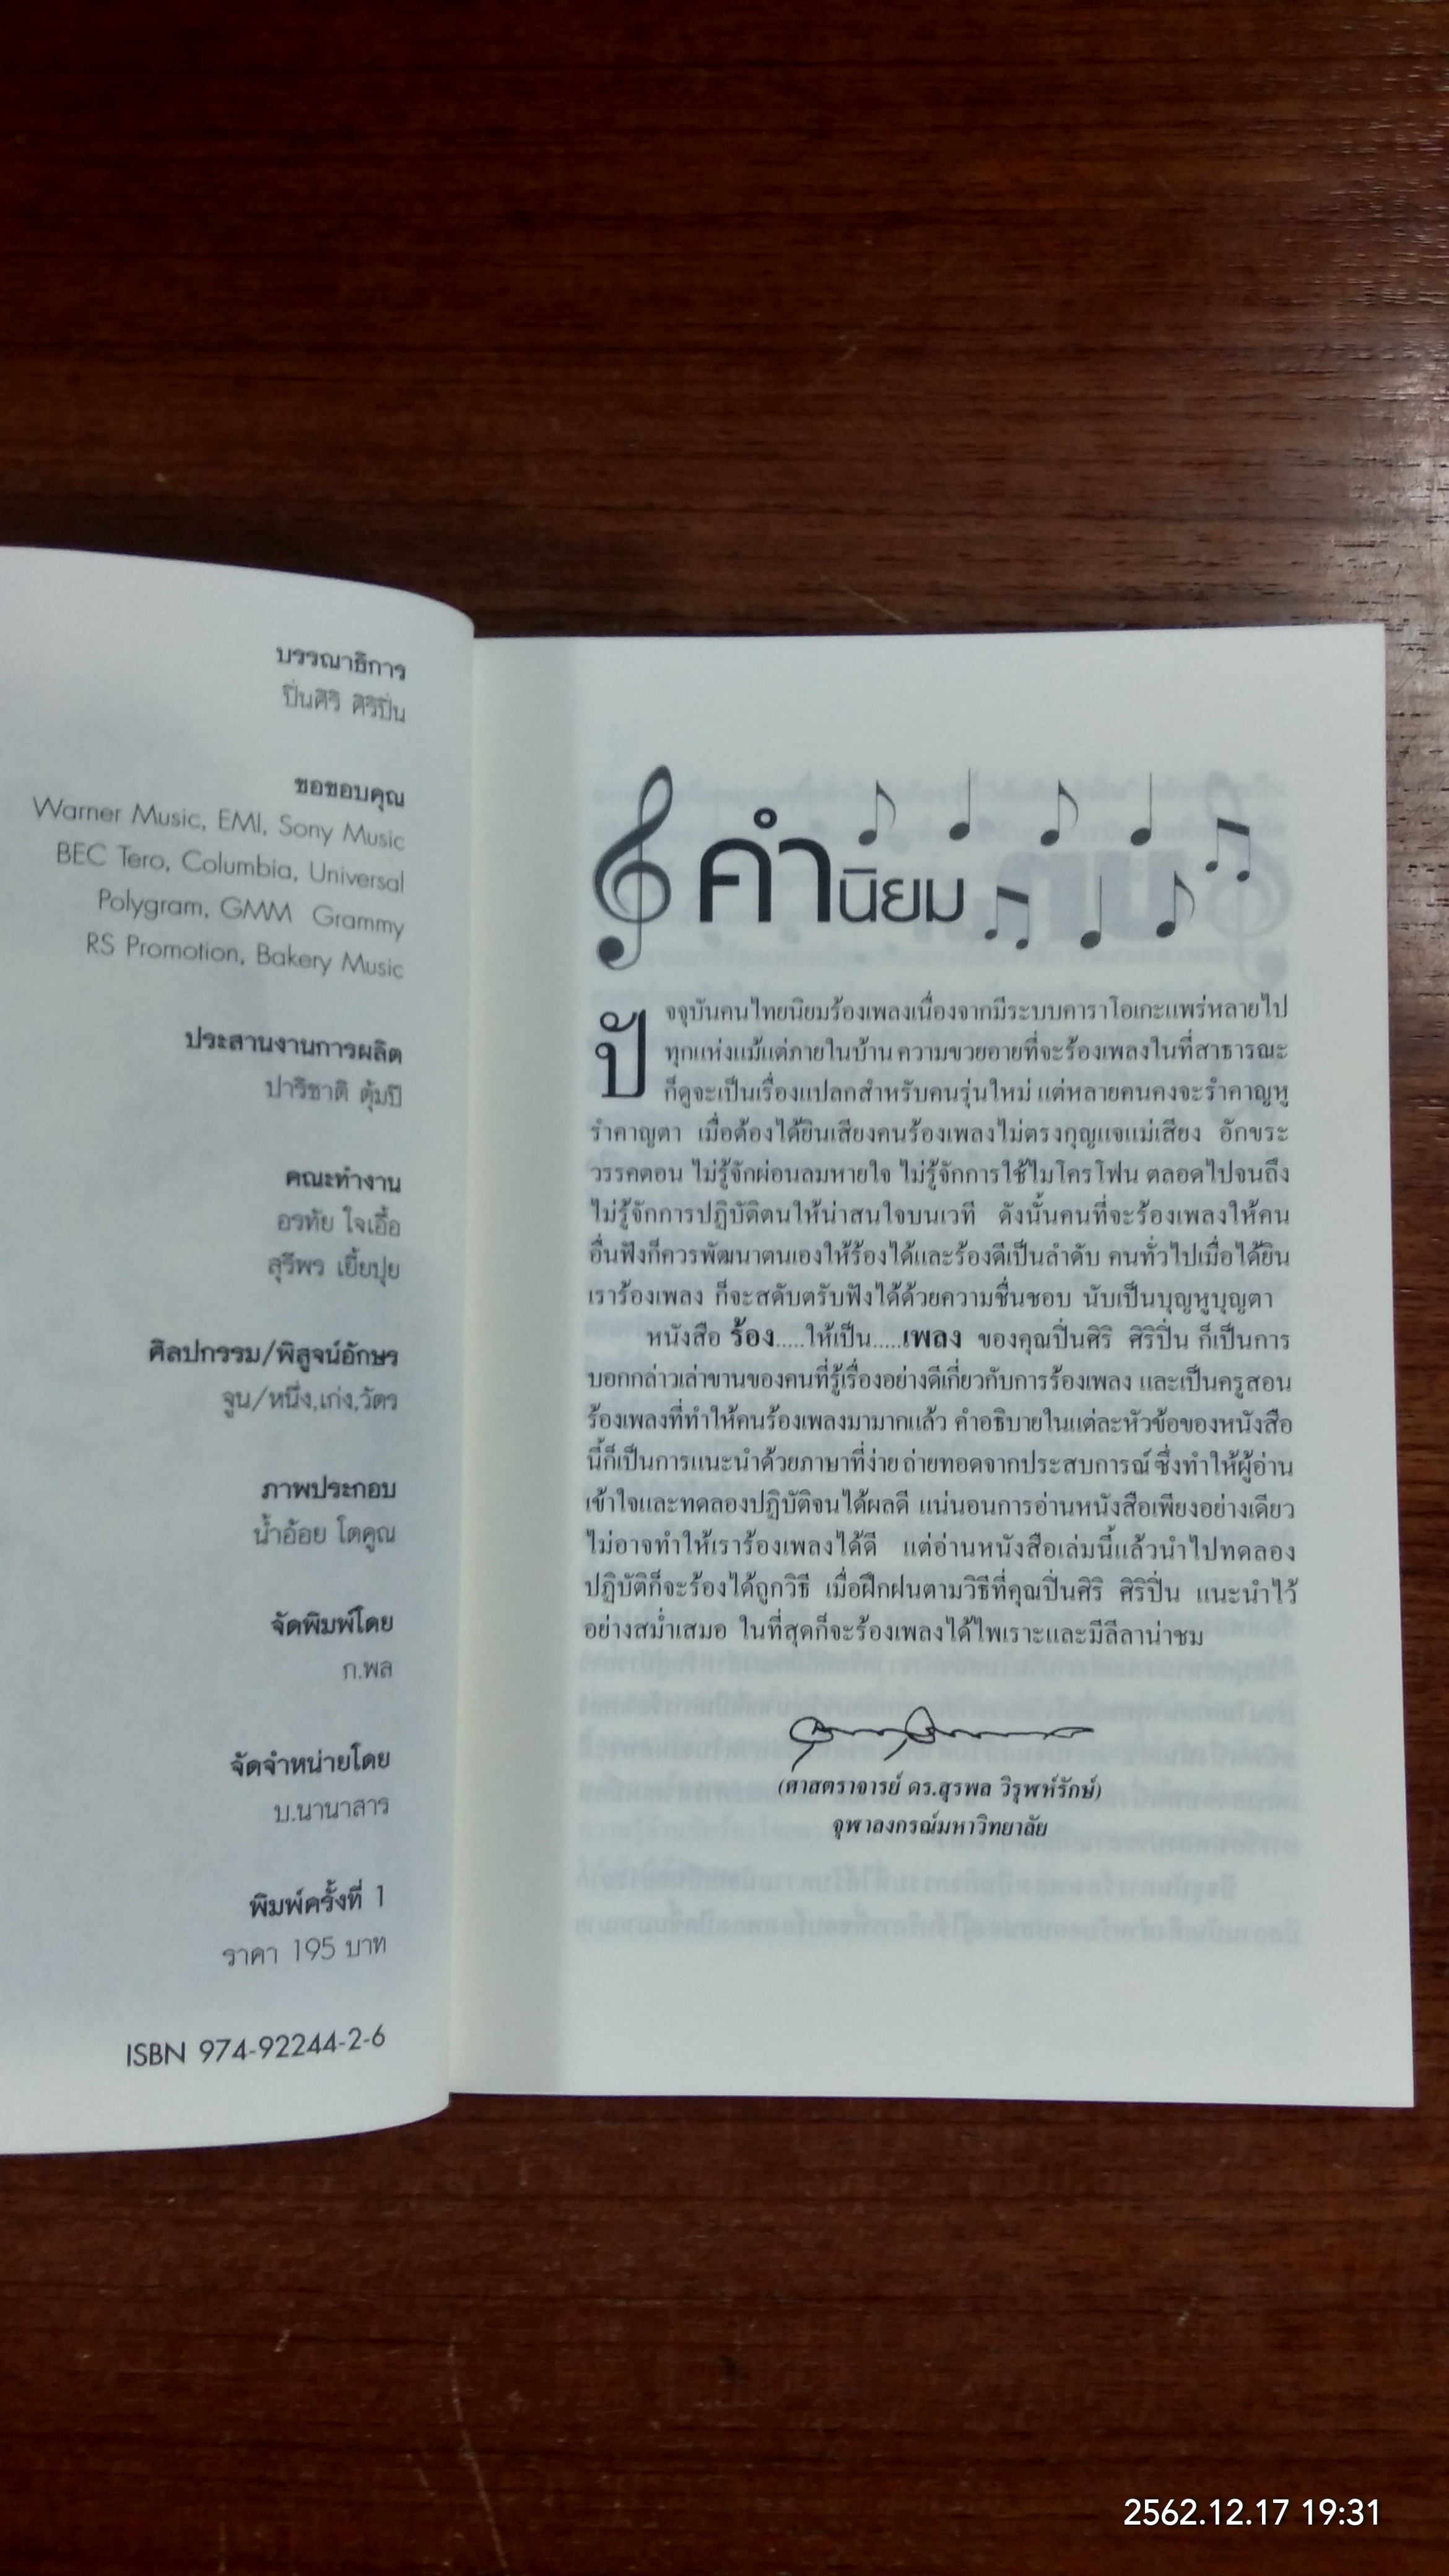 บรรณาธิการ
ปิ่นศิริ ศิริปิ่น
ขอขอบคุณ
Warner Music, EMI, Sony Music
BEC Tero, Columbia, Universal
Polygram, GMM Grammy
RS Promotion, Bakery Music
ประสานงานการผลิต
ปาริชาติ ตุ้มปี
คณะทำงาน
อรทัย ใจเอื้อ
สุรีพร เยี้ยปุย
ศิลปกรรม/พิสูจน์อักษร
จูน/หนึ่ง,เก่ง,วัตร
ภาพประกอบ
น้ำอ้อย โตคูณ
จัดพิมพ์โดย
ก.พล
จัดจำหน่ายโดย
บ.นานาสาร
พิมพ์ครั้งที่ 1
ราคา 195 บาท
ISBN 974-92244-2-6
คำนิยม
ปัจจุบันคนไทยนิยมร้องเพลงเนื่องจากมีระบบคาราโอเกะแพร่หลายไป
ทุกแห่งแม้แต่ภายในบ้าน ความขวยอายที่จะร้องเพลงในที่สาธารณะ
ก็ดูจะเป็นเรื่องแปลกสำหรับคนรุ่นใหม่ แต่หลายคนคงจะรำคาญหู
รำคาญตา เมื่อต้องได้ยินเสียงคนร้องเพลงไม่ตรงกุญแจแม่เสียง อักขระ
วรรคตอน ไม่รู้จักผ่อนลมหายใจ ไม่รู้จักการใช้ไมโครโฟน ตลอดไปจนถึง
ไม่รู้จักการปฏิบัติตนให้น่าสนใจบนเวที ดังนั้นคนที่จะร้องเพลงให้คน
อื่นฟังก็ควรพัฒนาตนเองให้ร้องได้และร้องดีเป็นลำดับ คนทั่วไปเมื่อได้ยิน
เราร้องเพลง ก็จะสดับตรับฟังได้ด้วยความชื่นชอบ นับเป็นบุญหูบุญตา
หนังสือ ร้อง.....ให้เป็น.....เพลง ของคุณปิ่นศิริ ศิริปิ่น ก็เป็นการ
บอกกล่าวเล่าขานของคนที่รู้เรื่องอย่างดีเกี่ยวกับการร้องเพลง และเป็นครูสอน
ร้องเพลงที่ทำให้คนร้องเพลงมามากแล้ว คำอธิบายในแต่ละหัวข้อของหนังสือ
นี้ก็เป็นการแนะนำด้วยภาษาที่ง่าย ถ่ายทอดจากประสบการณ์ ซึ่งทำให้ผู้อ่าน
เข้าใจและทดลองปฏิบัติจนได้ผลดี แน่นอนการอ่านหนังสือเพียงอย่างเดียว
ไม่อาจทำให้เราร้องเพลงได้ดี แต่อ่านหนังสือเล่มนี้แล้วนำไปทดลอง
ปฏิบัติก็จะร้องได้ถูกวิธี เมื่อฝึกฝนตามวิธีที่คุณปิ่นศิริ ศิริปิ่น แนะนำไว้
อย่างสม่ำเสมอ ในที่สุดก็จะร้องเพลงได้ไพเราะและมีลีลาน่าชม
(ศาสตราจารย์ ดร.สุรพล วิรุฬห์รักษ์)
จุฬาลงกรณ์มหาวิทยาลัย
2562.12.17 19:31